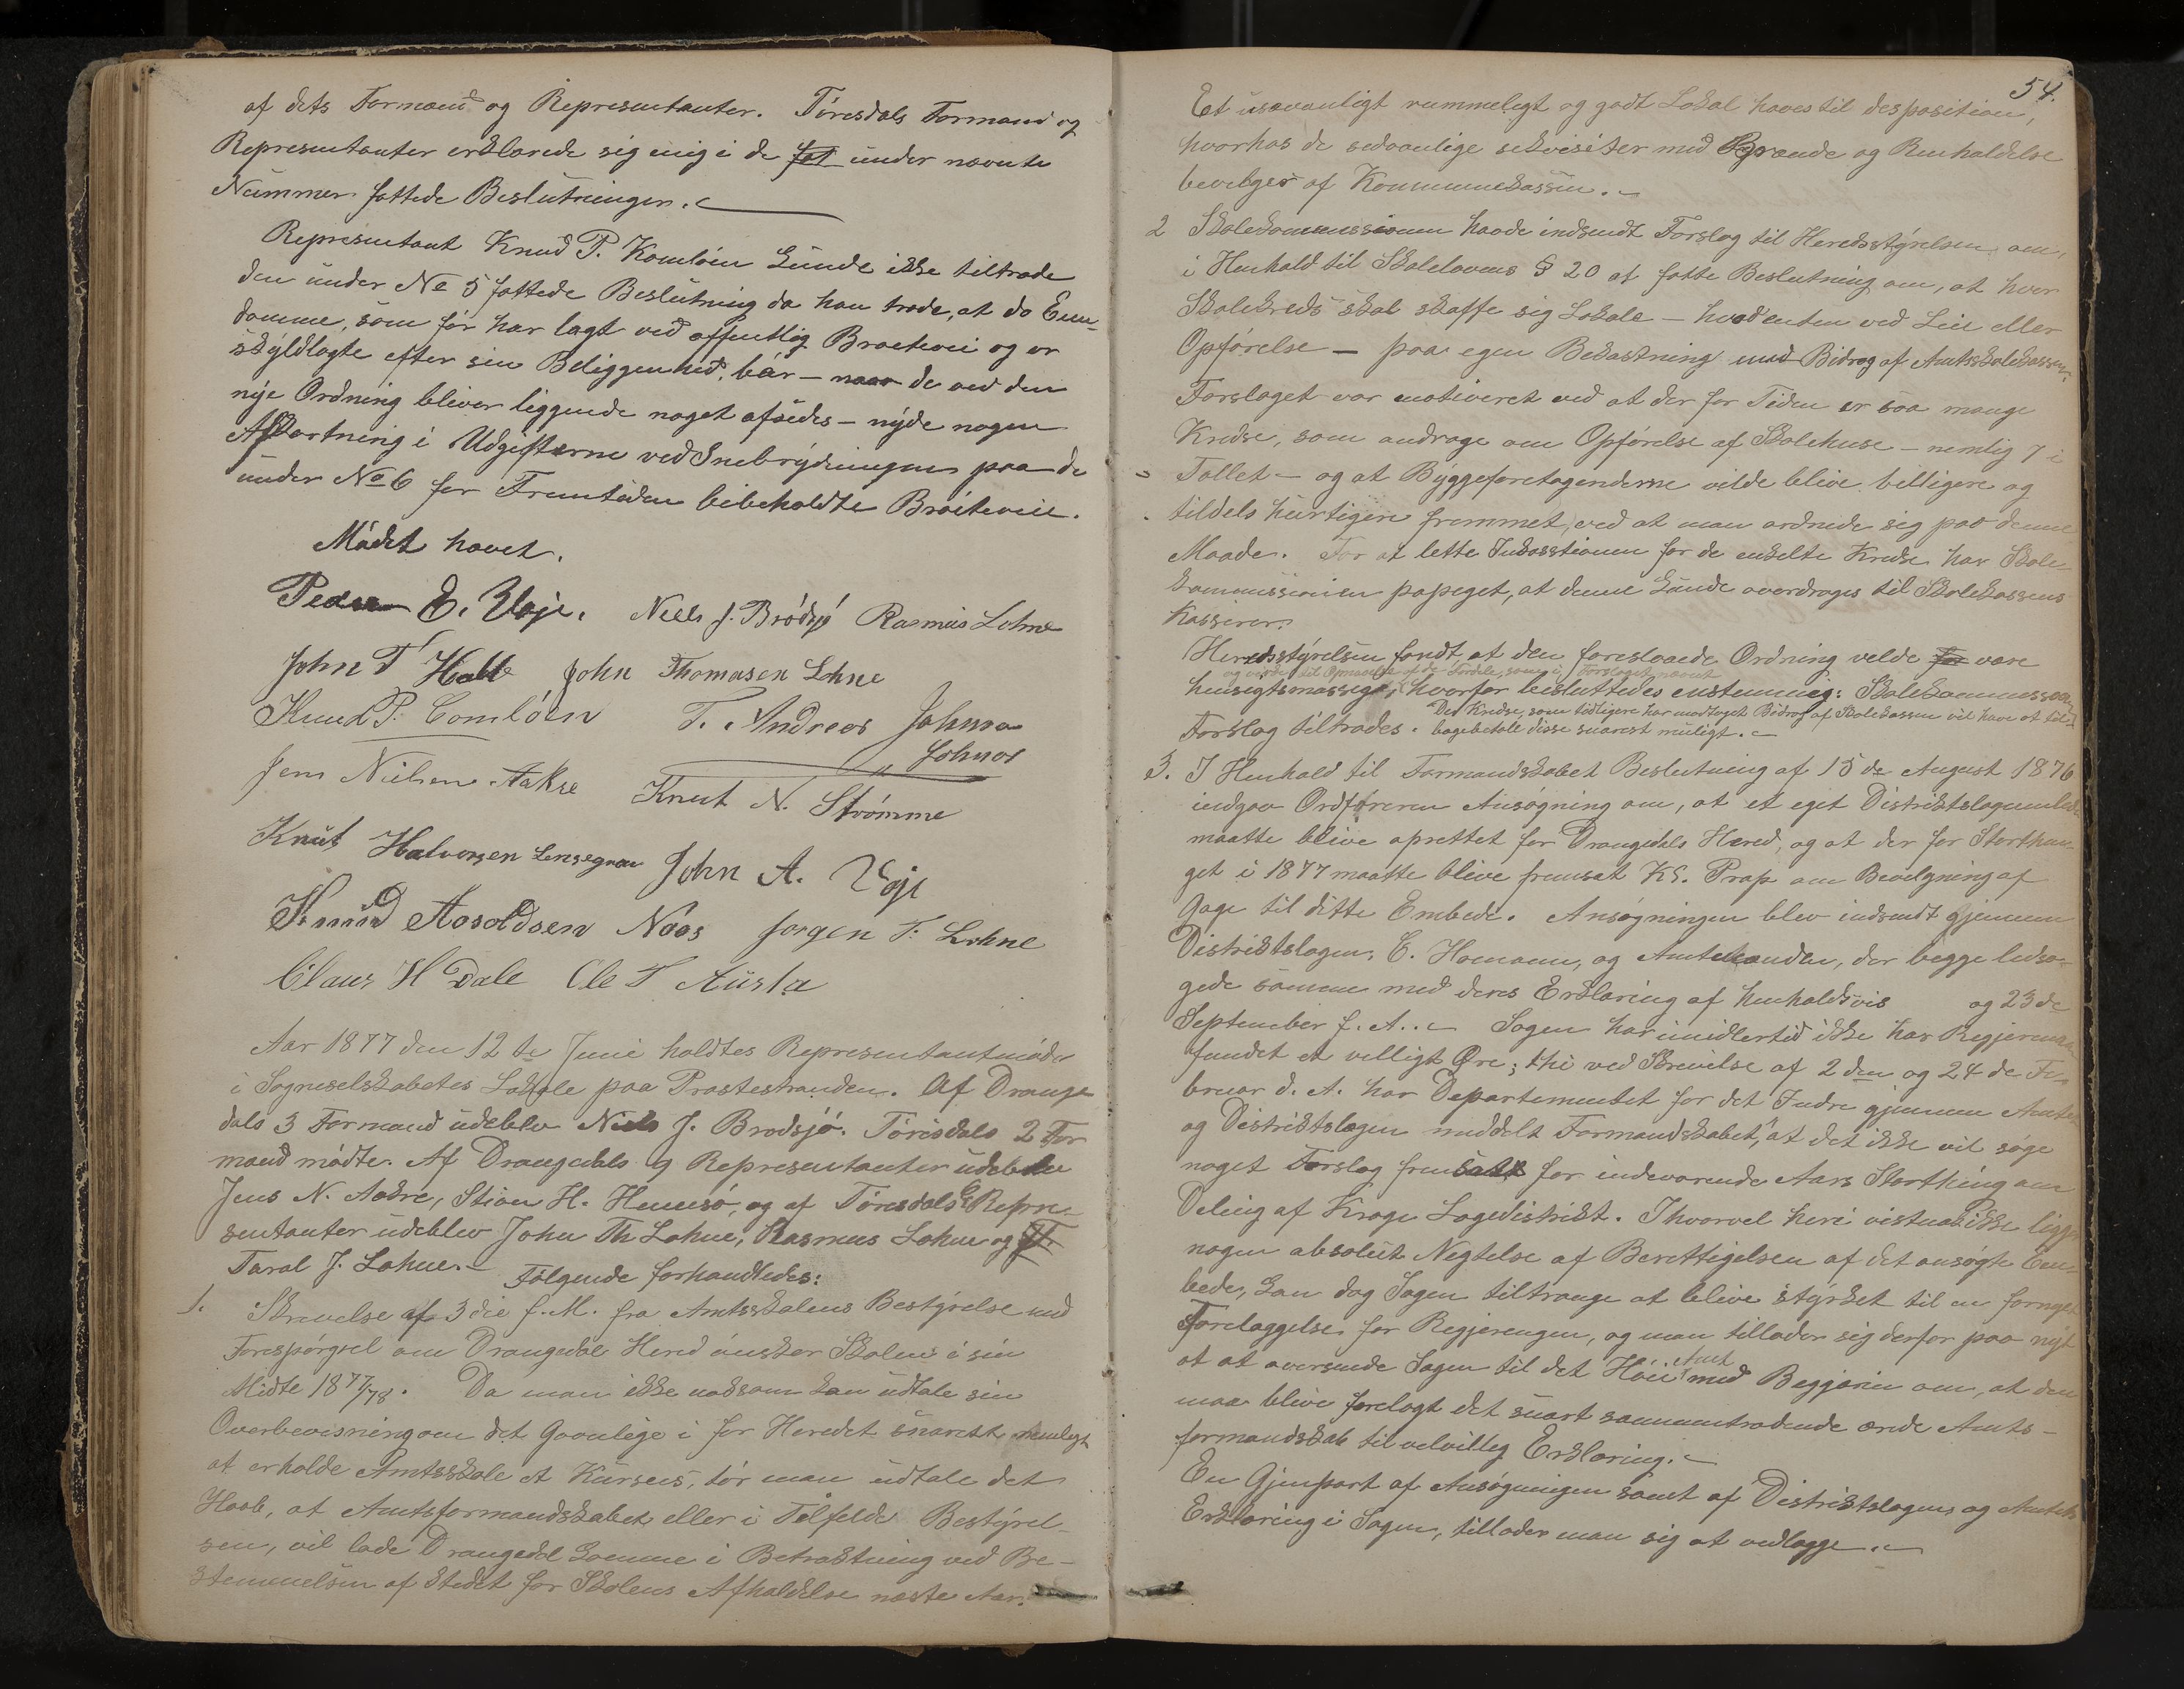 af dets Formænd og Representanter. Tørisdals Formænd og
Representanter erklærede sig enig i de fat under nævnte
Nummer fattede Beslutninger.
Representant Knud P. Komløin kunde ikke tiltræde
den under No 5 fattede Beslutning da han trode, at de Eien-
domme, som før har lagt ved offentlig Brøitevei og er
skyldlagte efter sin Beliggenhed, bør – naar de ved den
nye Ordning bliver liggende noget afsides – nyde nogen
Afkortning i Udgifterne ved Snebrydningen paa de
under No 6 for Fremtiden bibeholdte Brøiteveie.
Mødet hævet.
Peder E. Vøje. Niels J. Brødsjø Rasmus Lohne
John T Halle John Thomasen Lohne
Knud P. Comløen T. Andreas Johnsen
Lohne
Jens Nielsen Aakre Knut N. Strømme
Knut Halvorsen Lensegrav John A. Voje
Knud Aasoldsen Næs Jørgen T. Lohne
Claus H Dale Ole T Austa
Aar 1877 den 12te Juni holdtes Representantmøde
i Sogneselskabets Lokale paa Prestestranden. Af Drange
dals 3 Formænd udeblev Niels J. Brødsjø. Tørisdals 2 For
mænd mødte. Af Drangedals 9 Representanter udeblev
Jens N. Aakre, Stian H. Henseid, og af Tørisdals 6 Repre-
sentanter udeblev John Th Lohne, Rasmus Lohne og
Taral J. Lohne. – Følgende forhandledes:
1. Skrivelse af 3die f. M. fra Amtsskolens Bestyrelse med
Forespørgsel om Drangedal Hered ønsker Skolen i sin
Midte 1877/78. Da man ikke noksom kan udtale sin
Overbevisning om det Gavnlige i for Heredet snarest muligt
at erholde Amtsskole et Kursus, tør man udtale det
Haab, at Amtsformandskabet eller i Tilfelde Bestyrel-
sen, vil lade Drangedal komme i Betraktning ved Be-
stemmelsen af Stedet for Skolens Afholdelse næste Aar.
54.
Et usævanligt rummeligt og godt Lokal haves til desposition,
hvorhos de sedvanlige rekvisiter med Brænde og Renholdelse
bevilges af Kommunekassen. –
2 Skolekommissionen havde indsendt Forslag til Heredsstyrelsen om,
i Henhold til Skolelovens § 20 at fatte Beslutning om, at hver
Skolekreds skal skaffe sig Lokale – hvad enten ved Leie eller
Opførelse – paa egen Bekostning med Bidrag af Amtsskolekassen.
Forslaget var motiveret ved at der for Tiden er saa mange
Kredse, som andrage om Opførelse af Skolehuse – nemlig 7 i
Tallet – og at Byggeforetagenderne vilde blive billigere og
tildels hurtigere fremmet, ved at man ordnede sig paa denne
Maade. For at lette Inkasstionen for de enkelte Kredse har Skole-
kommissionen papeget, at denne kunde overdrages til Skolekassens
Kasserer.
Heredsstyrelsen fandt, at den foreslaaede Ordning vilde for være
og virke til Opnaaelse af de Fordele, som i Forslaget nævnt
hensigtsmæssig, hvorfor besluttedes enstemmig: Skolekommissionens
De Kredse, som tidligere har modtaget Bidrag af Skolekassen vil have at til-
Forslag tiltrædes. bagebetale disse snarest muligt. –
3. I Henhold til Formandskabet Beslutning af 15de August 1876
indgav Ordføreren Ansøgning om, at et eget Distriktslægeembede
maatte blive oprettet for Drangedals Hered, og at der for Storthin-
get i 1877 maatte blive fremsat Kgl. Prop om Bevilgning af
Gage til ditte Embede. Ansøgningen blev indsendt gjennem
Distriktslægen, C. Homann, og Amtmanden, der begge ledsa-
gede samme med deres Erklæring af henholdsvis og 23de
September f. A.. – Sagen har imidlertid ikke hos Regjeringen
fundet et villigt Øre; thi ved Skrivelse af 2den og 24de Fe-
bruar d. A. har Departementet for det Indre gjennem Amtet
og Distriktslægen meddelt Formandskabet, "at det ikke vil søge
noget Forslag fremsatt for indeværende Aars Storthing om
Deling af Kragø Lægedistrikt. Ihvorvel heri vistnok ikke ligger
nogen absolut Negtelse af Berettigelsen af det ansøgte Em-
bede, kan dog Sagen tiltrænge at blive styrket til en fornyet
Forelæggelse for Regjeringen, og man tillader sig derfor paa nyt
at at oversende Sagen til det Høie Amt med Begjæring om, at den
maa blive forelagt det snart sammentrædende ærede Amts-
formandskab til velvillig Erklæring. –
En Gjenpart af Ansøgningen samt af Distriktslægens og Amtets
Erklæring i Sagen, tillader man sig at vedlægge. –